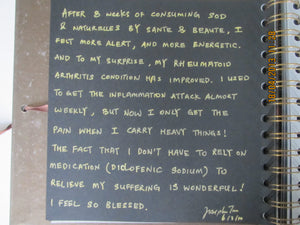 AFTER 8 WEEKS OF CONSUMING SOD
& NATURELLE3 BY SANTE & BEAUTE, I
FELT MORE ALERT, AND MORE ENERGETIC.
AND TO MY SURPRISE, MY RHEUMATOID
ARTHRITIS CONDITION HAS IMPROVED. I USED
TO GET THE INFLAMMATION ATTACK ALMOST
WEEKLY, BUT NOW I ONLY GET THE
PAIN WHEN I CARRY HEAVY THINGS!
THE FACT THAT I DON'T HAVE TO RELY ON
MEDICATION (DICLOFENIC SODIUM) TO
RELIEVE MY SUFFERING IS WONDERFUL!
I FEEL SO BLESSED.